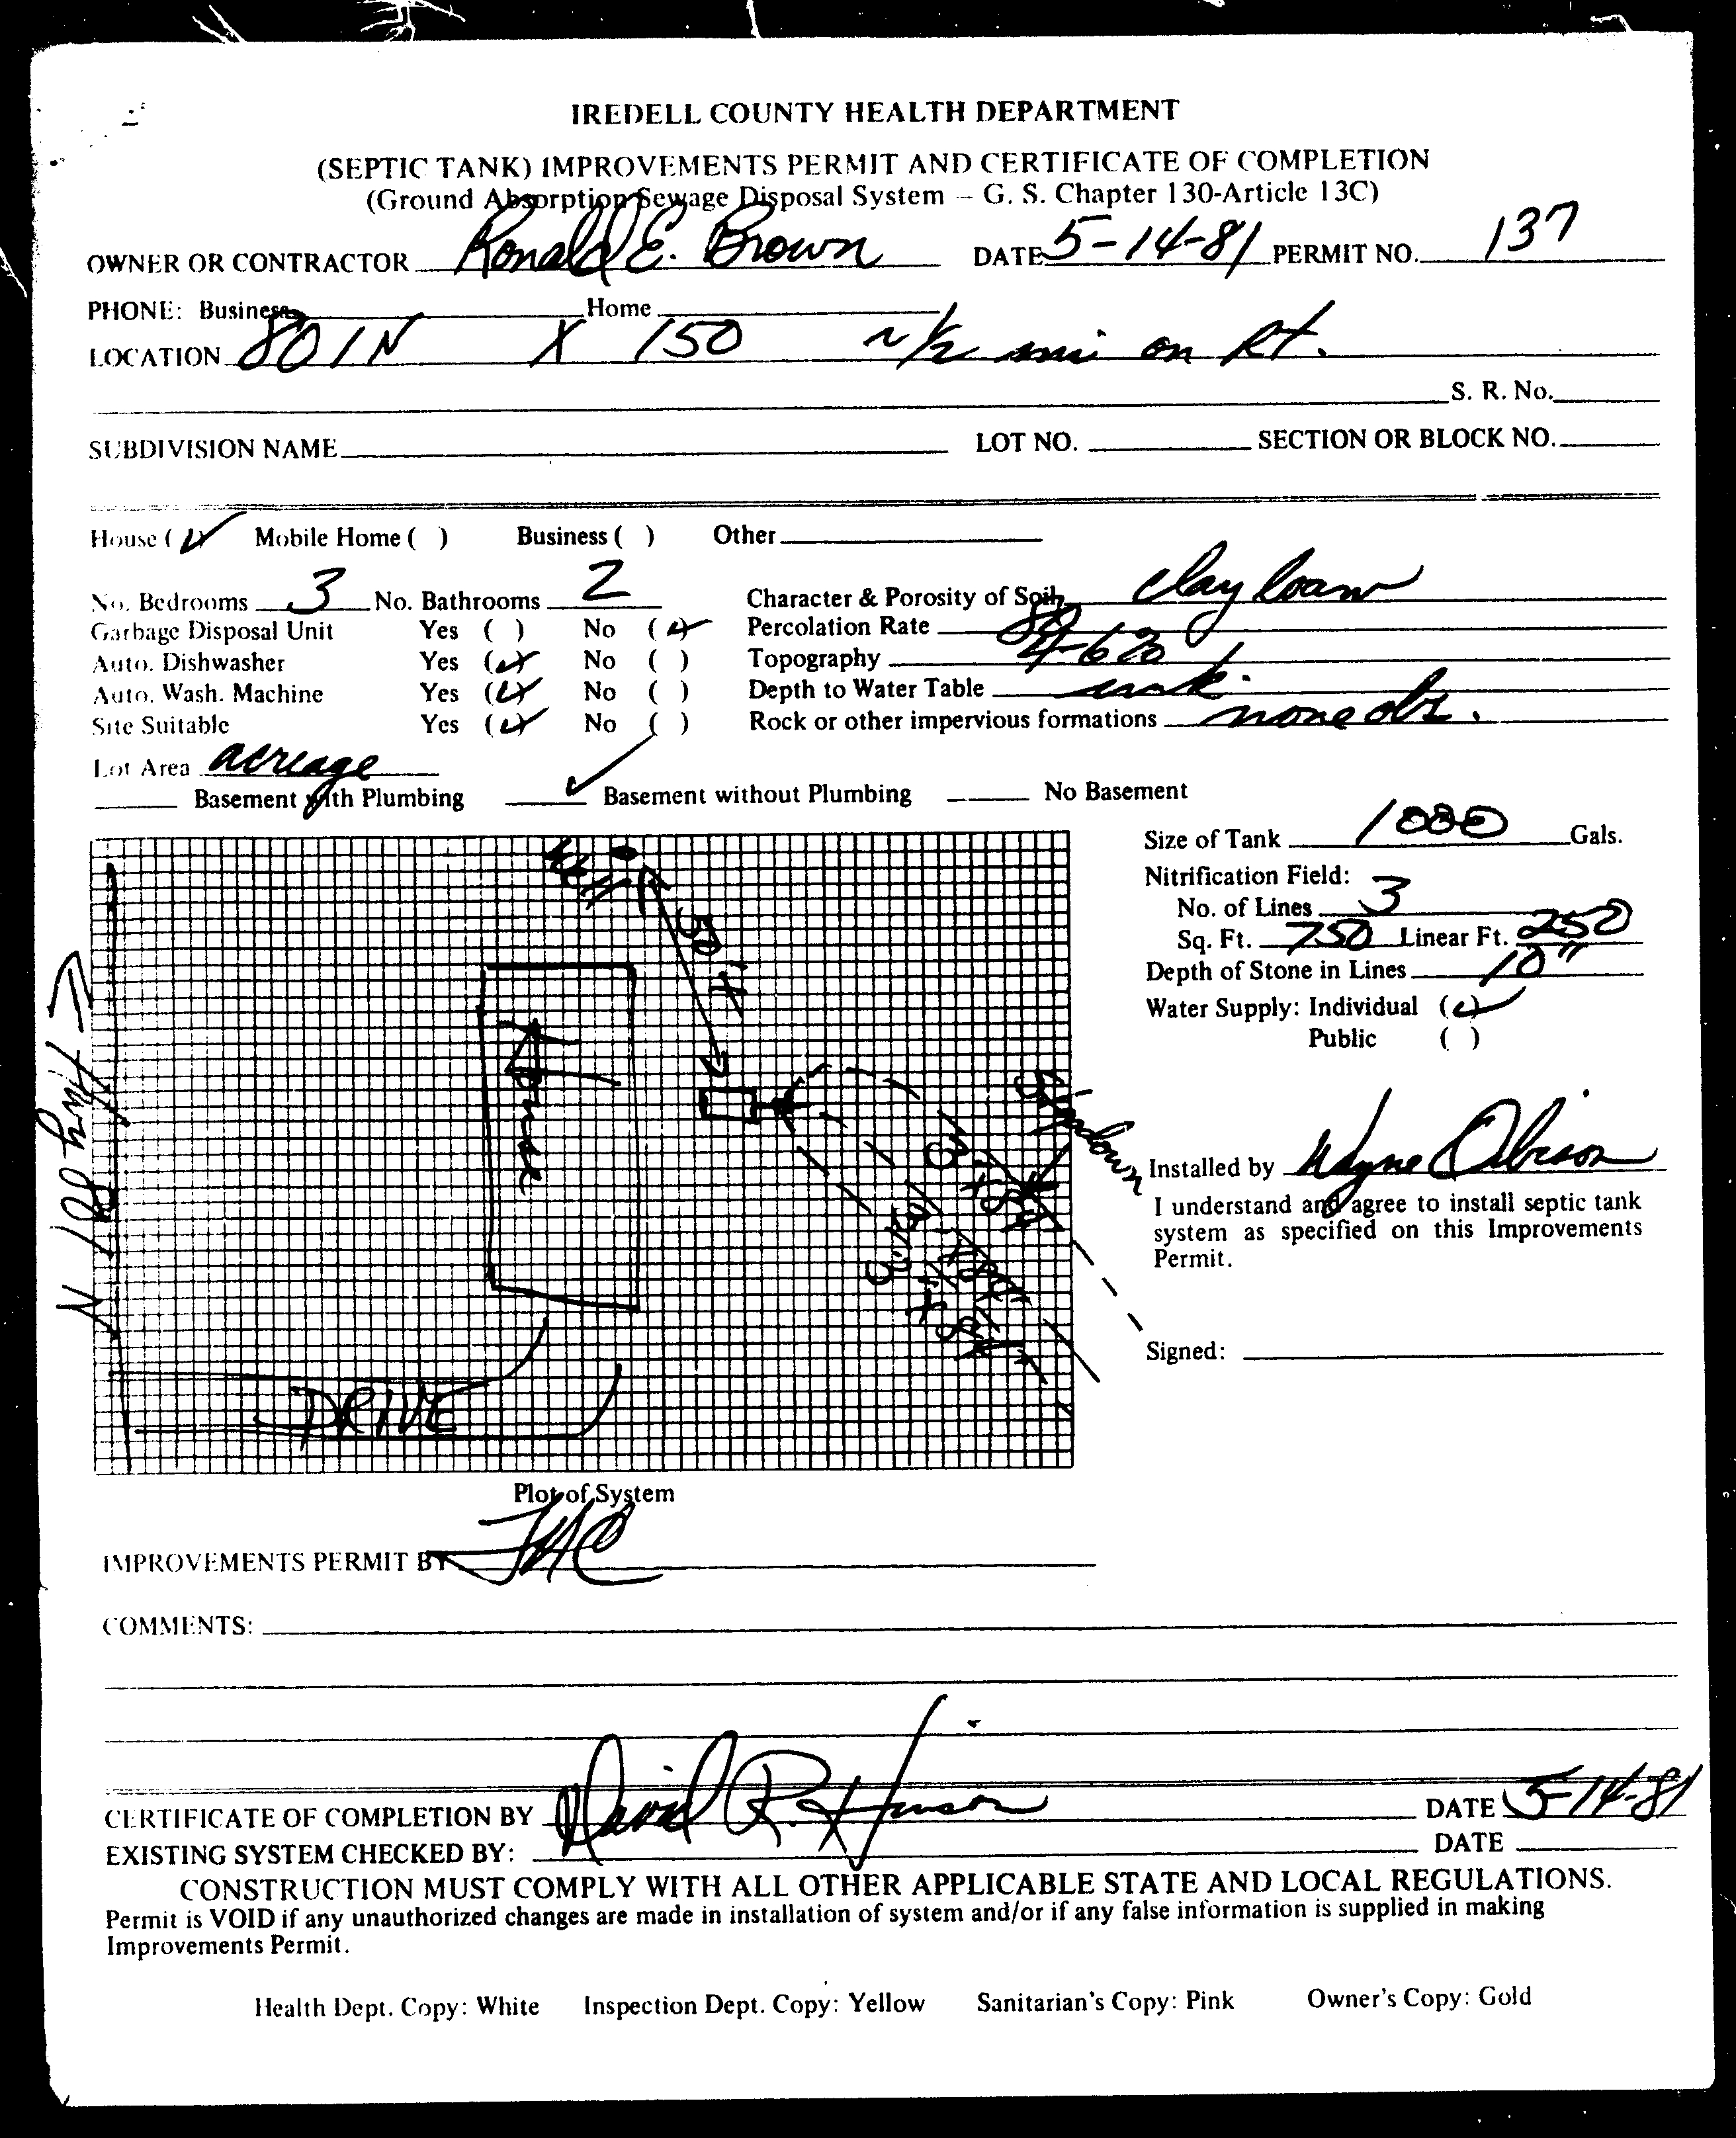 IREDELL COUNTY HEALTH DEPARTMENT
(SEPTIC TANK) IMPROVEMENTS PERMIT AND CERTIFICATE OF COMPLETION
(Ground Absorption Sewage Disposal System – G. S. Chapter 130-Article 13C)
OWNER OR CONTRACTOR Ronald E. Brown DATE 5-14-81 PERMIT NO. 137
PHONE: Business Home
LOCATION 801N X 150 ~ 1/2 mi on Rt.
S. R. No.
SUBDIVISION NAME LOT NO. SECTION OR BLOCK NO.
House (✓) Mobile Home ( ) Business ( ) Other
No. Bedrooms 3 No. Bathrooms 2 Character & Porosity of Soil clay loam
Garbage Disposal Unit Yes ( ) No (✓) Percolation Rate
Auto. Dishwasher Yes (✓) No ( ) Topography
Auto. Wash. Machine Yes (✓) No ( ) Depth to Water Table unk.
Site Suitable Yes (✓) No ( ) Rock or other impervious formations none obs.
Lot Area acreage
Basement with Plumbing ✓ Basement without Plumbing No Basement
Size of Tank 1000 Gals.
Nitrification Field:
No. of Lines 3
Sq. Ft. 750 Linear Ft. 250
Depth of Stone in Lines 10"
Water Supply: Individual (✓)
Public ( )
Well
50 ft
House
N 801 Hwy
DRIVE
Installed by Wayne
I understand and agree to install septic tank
system as specified on this Improvements
Permit.
Signed:
Plot of System
IMPROVEMENTS PERMIT BY
COMMENTS:
CERTIFICATE OF COMPLETION BY David R. DATE 5-14-81
EXISTING SYSTEM CHECKED BY: DATE
CONSTRUCTION MUST COMPLY WITH ALL OTHER APPLICABLE STATE AND LOCAL REGULATIONS.
Permit is VOID if any unauthorized changes are made in installation of system and/or if any false information is supplied in making
Improvements Permit.
Health Dept. Copy: White Inspection Dept. Copy: Yellow Sanitarian's Copy: Pink Owner's Copy: Gold